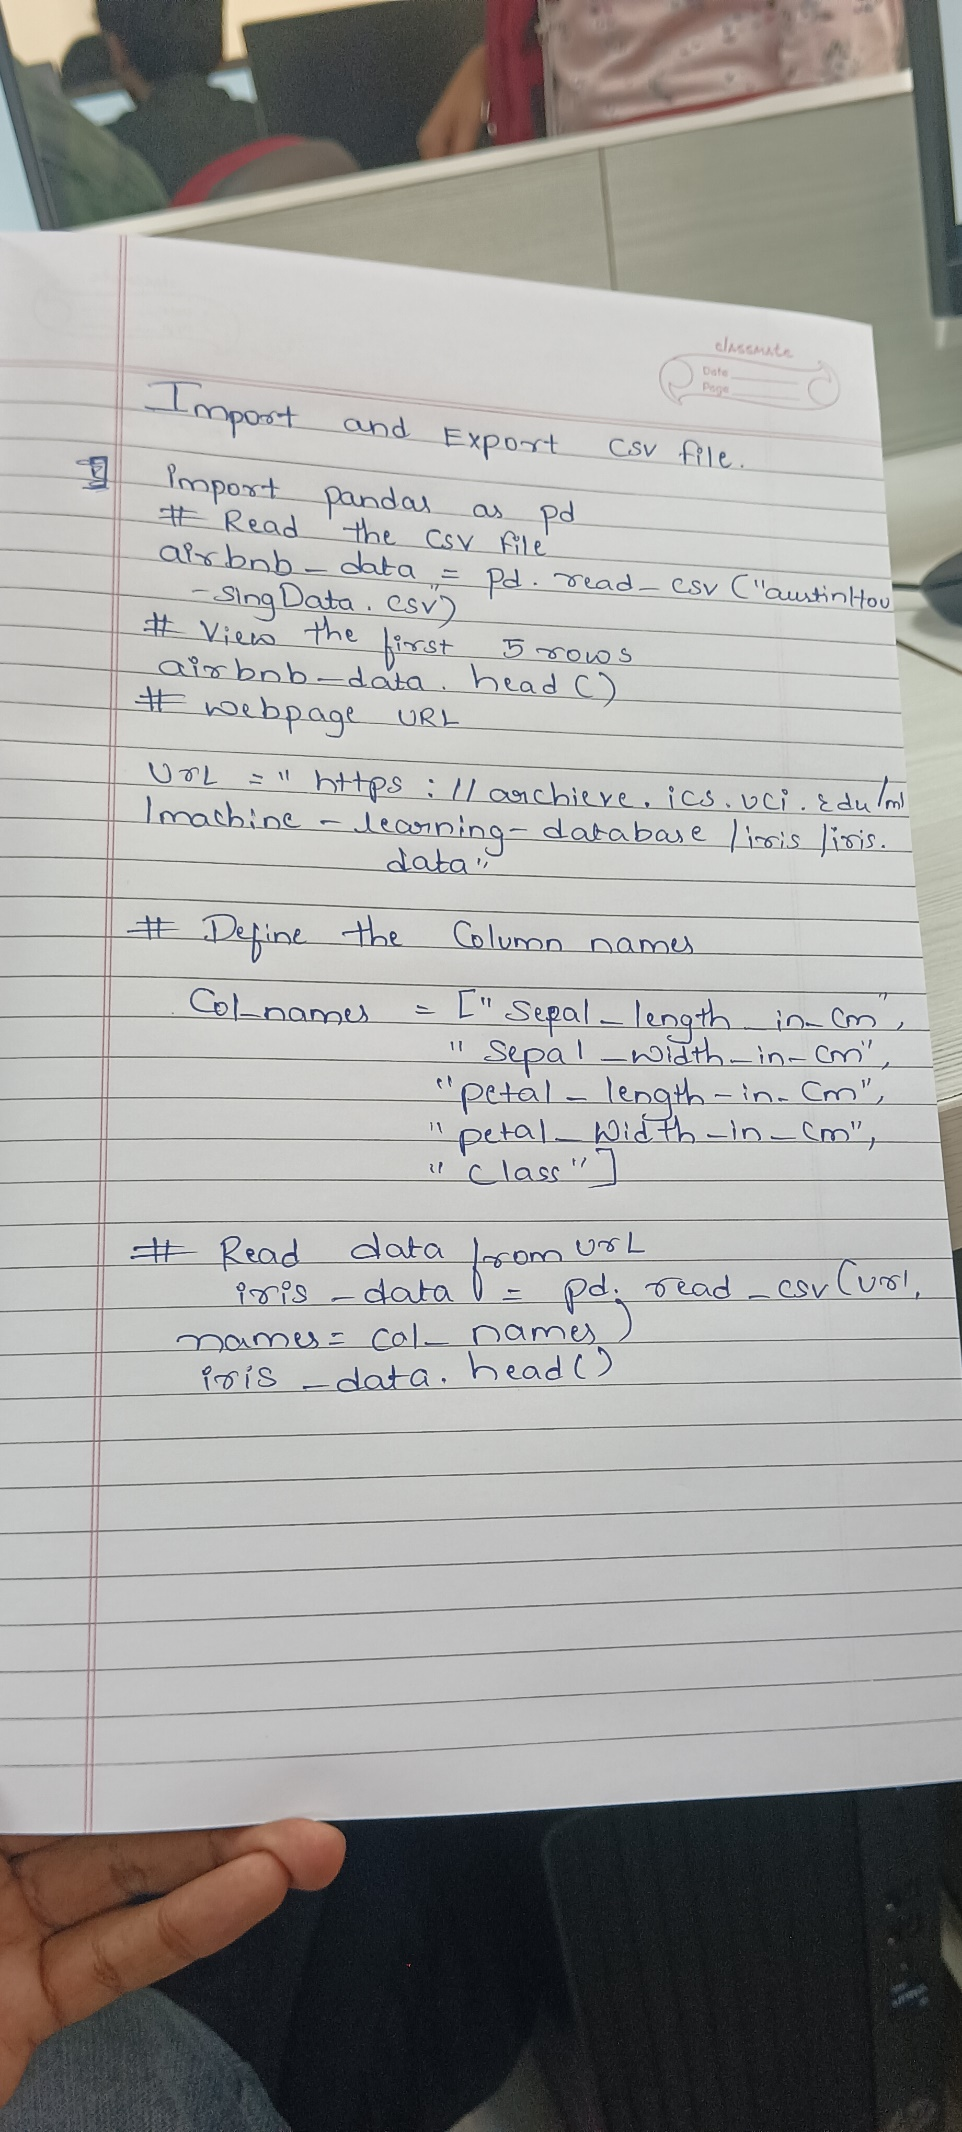 classmate
Date
Page
Import and Export csv file.
import pandas as pd
# Read the csv file
airbnb_data = pd.read_csv("austinHou
-singData.csv")
# View the first 5 rows
airbnb_data.head()
# webpage URL
UrL = "https://archieve.ics.uci.edu/ml
/machine-learning-database/iris/iris.
data"
# Define the Column names
Col_names = ["Sepal_length_in_cm",
"Sepal_width_in_cm",
"petal_length_in_cm",
"petal_width_in_cm",
"class"]
# Read data from UrL
iris_data = pd.read_csv(url,
names=cal_names)
iris_data.head()